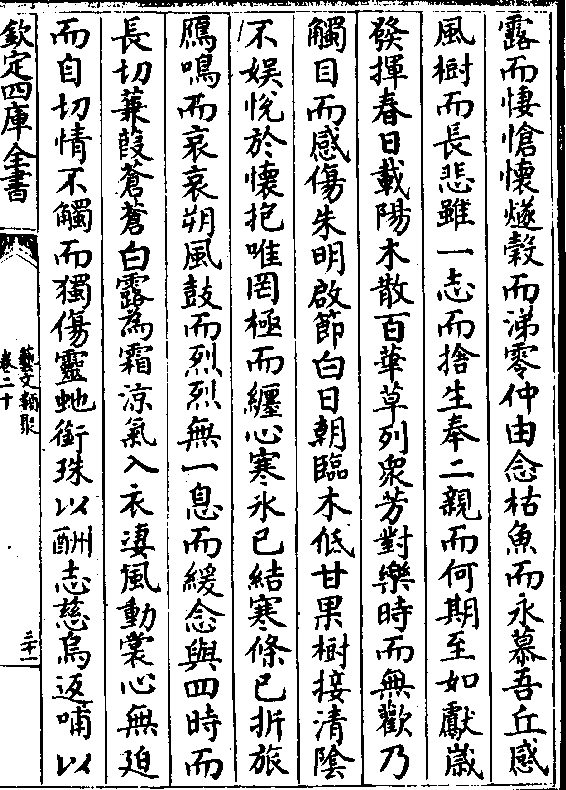 露而悽愴懷燧榖而涕零仲由念枯魚而永慕吾丘感
風樹而長悲雖一志而捨生奉二親而何期至如獻嵗
發揮春日載陽木散百華草列衆芳對樂時而無歡乃
觸目而感傷朱明啟節白日朝臨木低甘果樹接清陰
不娯悅於懷抱唯罔極而纒心寒氷已結寒條已折旅
鴈鳴而哀哀朔風鼓而烈烈無一息而緩念與四時而
長切蒹葭蒼蒼白露為霜涼氣入衣淒風動裳心無迫
而自切情不觸而獨傷靈虵銜珠以酬志慈烏返哺以
欽定四庫全書
藝文類聚
卷二十
三十一